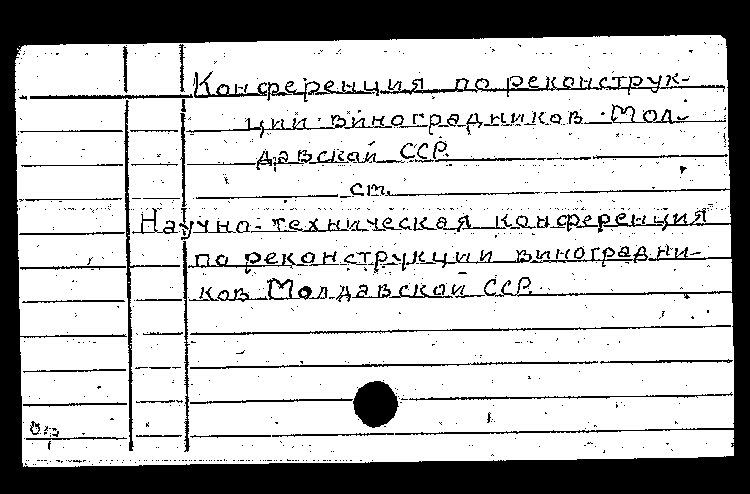 Конференция по реконструк-
ции виноградников Мол-
давской ССР.
ст.
Научно-техническая конференция
по реконструкции виноградни-
ков Молдавской ССР.